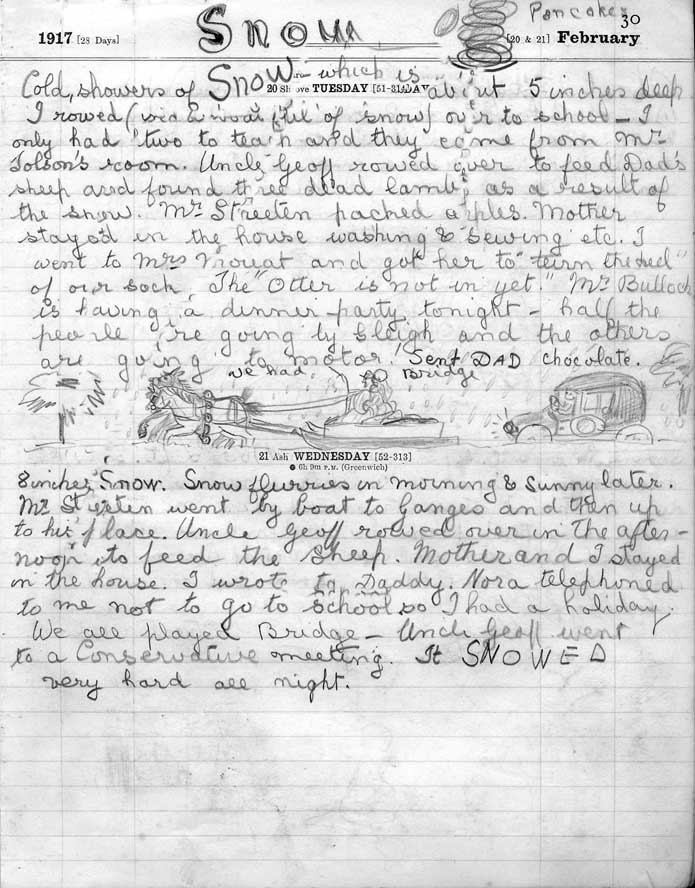 Pancakes
30
1917 [28 Days] Snow [20 & 21] February
Cold, showers of Snow which is about 5 inches deep
20 Shrove TUESDAY [51-314]
I rowed ( full of snow) over to school - I
only had two to teach and they came from Mr
Tolson's room. Uncle Geoff rowed over to feed Dad's
sheep and found three dead lambs as a result of
the snow. Mr Streeten packed apples. Mother
stayed in the house washing & sewing etc. I
went to Mrs and got her to "turn the heel"
of our sock. The "Otter is not in yet." Mr Bullock
is having a dinner-party tonight - half the
people are going by sleigh and the others
are going to motor. Sent DAD chocolate.
we had Bridge
21 Ash WEDNESDAY [52-313]
● 6h 9m P.M. (Greenwich)
8 inches Snow. Snow flurries in morning & sunny later.
Mr Streeten went by boat to Ganges and then up
to his place. Uncle Geoff rowed over in the after-
noon to feed the sheep. Mother and I stayed
in the house. I wrote to Daddy. Nora telephoned
to me not to go to school so I had a holiday.
We all played Bridge - Uncle Geoff went
to a Conservative meeting. It SNOWED
very hard all night.